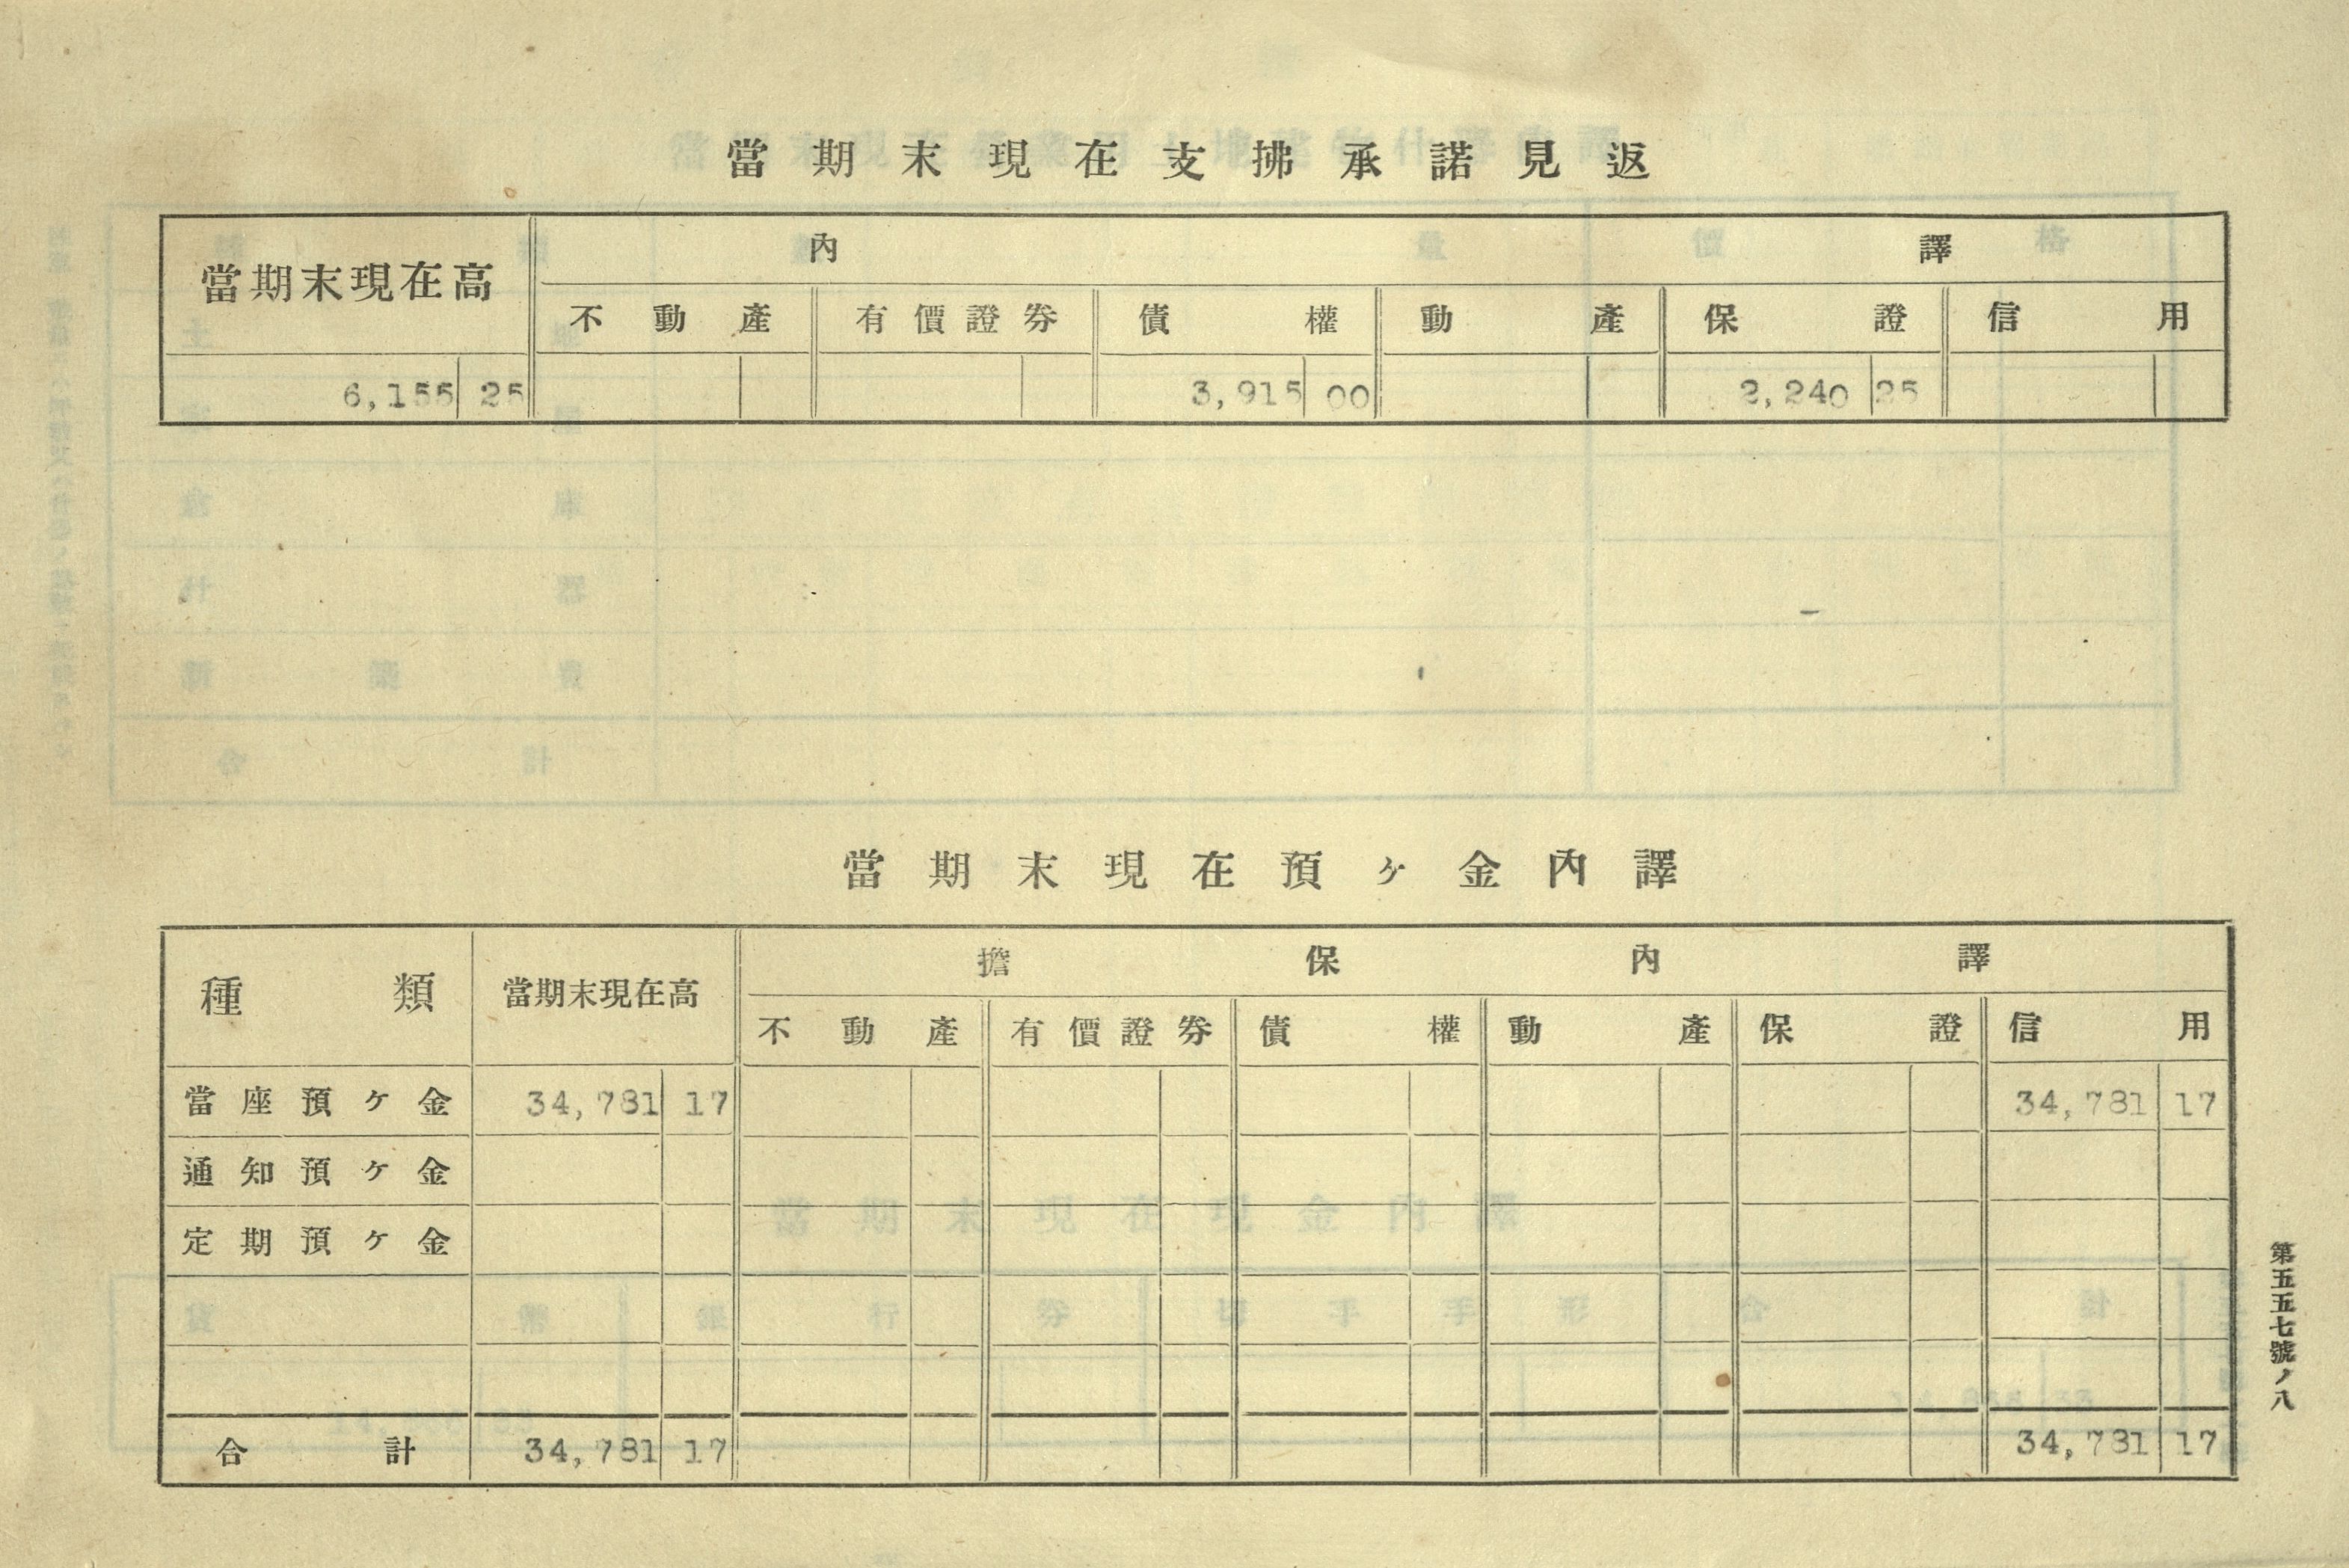 當期末現在支拂承諾見返
當期末現在高 內譯
不動產 有價證券 債權 動產 保證 信用
6,155 25 3,915 00 2,240 25
當期末現在預ヶ金內譯
種類 當期末現在高 擔保內譯
不動產 有價證券 債權 動產 保證 信用
當座預ヶ金 34,781 17 34,781 17
通知預ヶ金
定期預ヶ金
合計 34,781 17 34,781 17
第五五七號ノ八